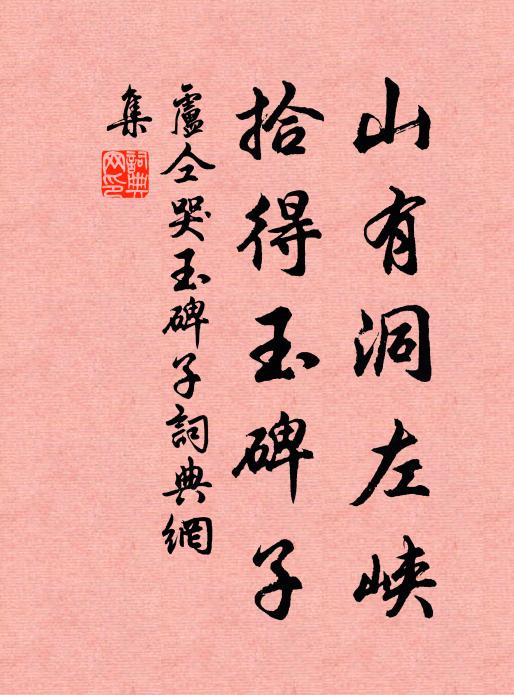 山有洞左峽
拾得玉碑子
盧仝哭玉碑子詞典網
集
詞典網印